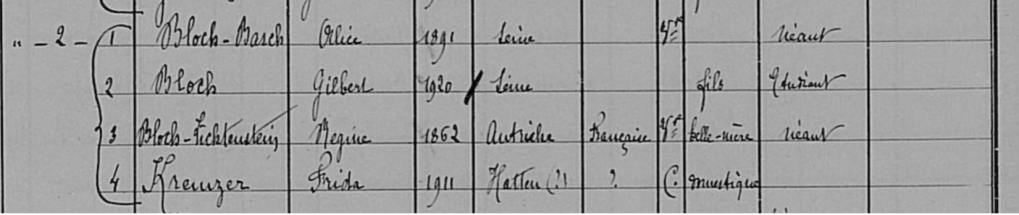 " - 2 - 1 Bloch-Basch Alice 1891 Seine Vve néant
2 Bloch Gilbert 1920 Seine fils Etudiant
3 Bloch-Lichtenstein Regine 1862 Autriche Française Vve belle-mère néant
4 Kreuzer Frida 1911 Hatten (?) ? C.